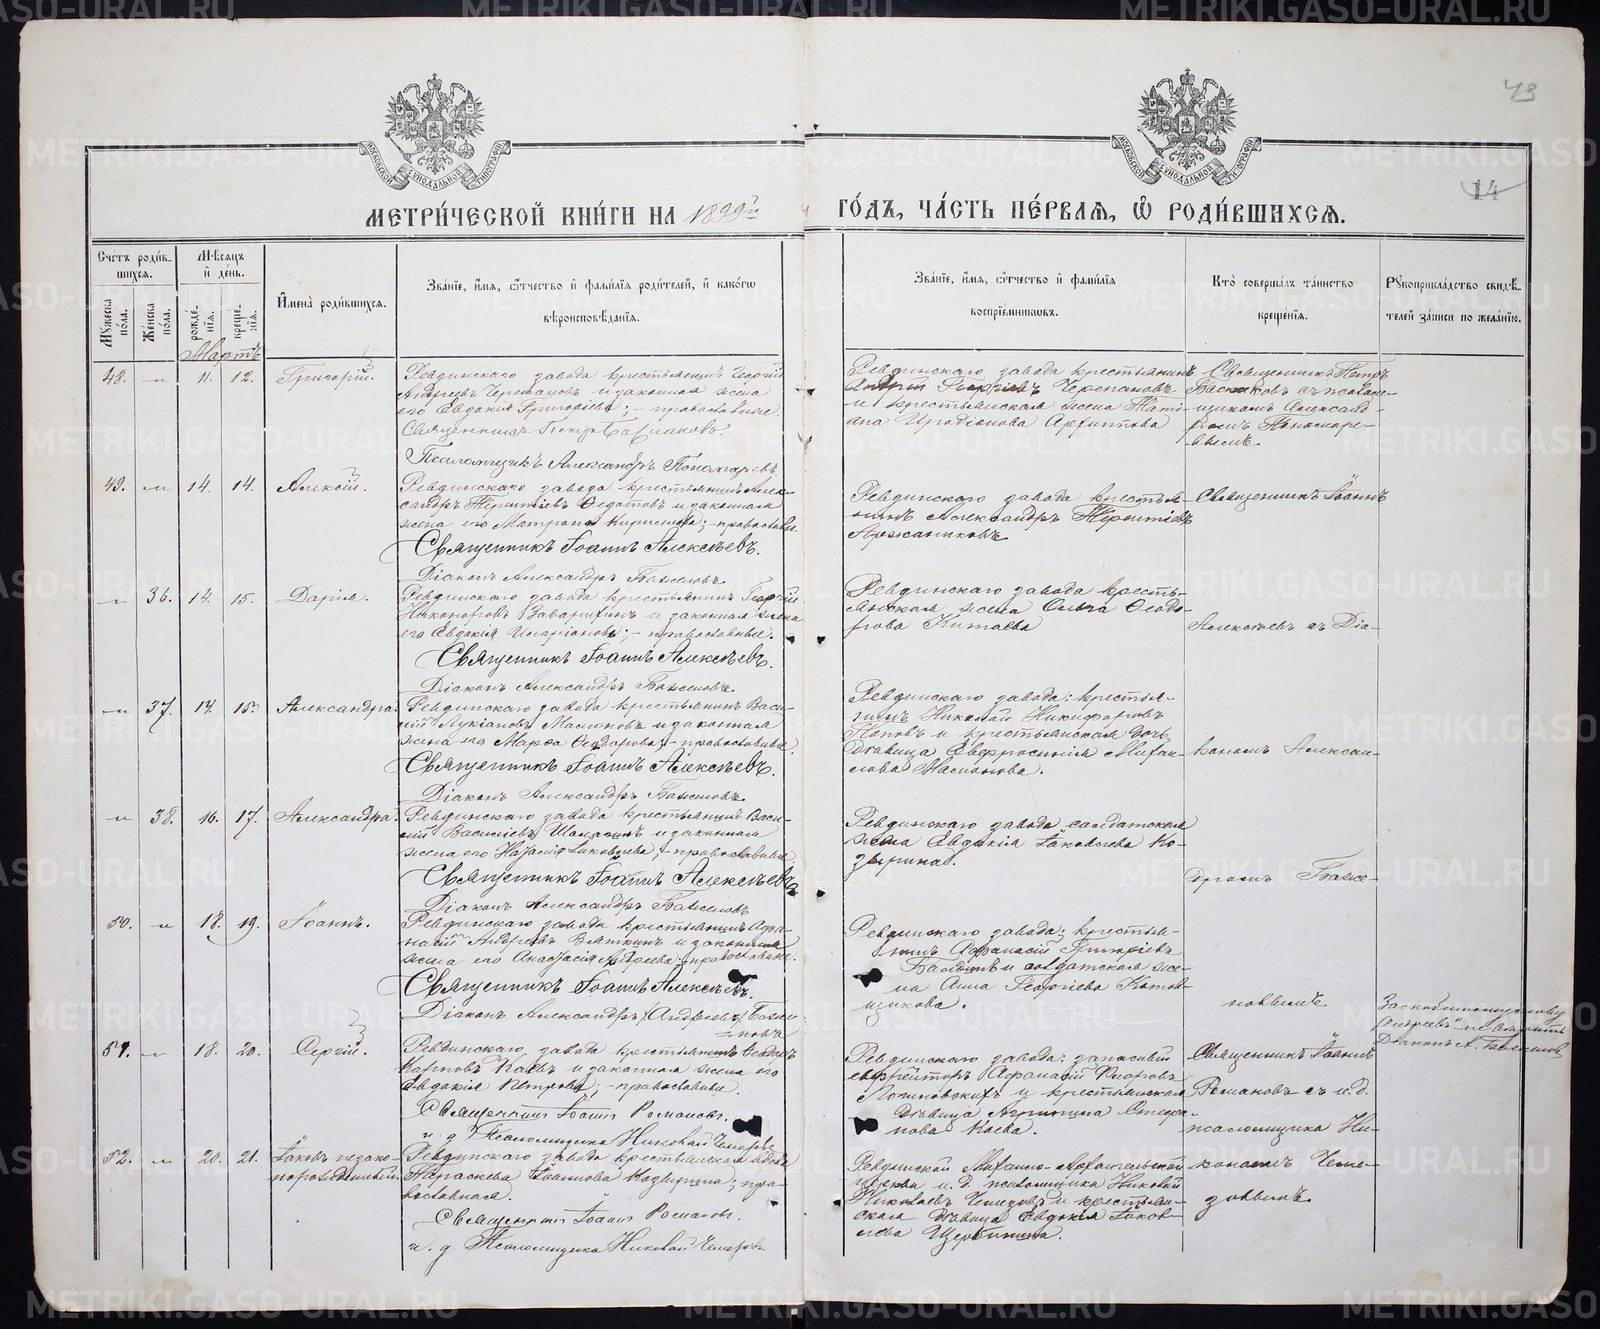 43
14
МЕТРИ́ЧЕСКОЙ КНИ́ГИ НА 1899й
ГО́ДЪ, ЧА́СТЬ ПЕ́РВАЯ, Ѡ РОДИ́ВШИХСЯ.
Сче́тъ роди́в-
шихся.
Му́жеска по́ла.
Же́нска по́ла.
Мѣ́сяцъ и де́нь.
рожде́-
нія.
креще́-
нія.
Имена̀ роди́вшихся.
Зва́ніе, и́мя, ѻ́тчество и фами́лія роди́телей, и како́гѡ
вѣроисповѣ́данія.
Зва́ніе, и́мя, ѻ́тчество и фами́лія
воспріе́мниковъ.
Кто̀ соверша́лъ та́инство
креще́нія.
Рꙋкоприкла́дство свидѣ́-
телей за́писи по жела́нію.
Мартъ
48. — 11. 12. Григорій.
Ревдинскаго завода крестьянинъ Георгій
Андреевъ Черепановъ и законная жена
его Евдокія Григорьева; — православные
Священникъ Петръ Баскаковъ.
Псаломщикъ Александръ Пономаревъ
Ревдинскаго завода крестьянинъ
Андрей Георгіевъ Черепановъ
и крестьянская жена Тать-
яна Иродіонова Архипова
Священникъ Петръ
Баскаковъ съ псалом-
щикомъ Александ-
ромъ Пономаре-
вымъ.
49. — 14. 14. Алексій.
Ревдинскаго завода крестьянинъ Алек-
сандръ Терентіевъ Федотовъ и законная
жена его Матрона Кирилова; — православн.
Священникъ Іоаннъ Алексѣевъ.
Діаконъ Александръ Баженовъ.
Ревдинскаго завода крестья-
нинъ Александръ Терентіевъ
Священникъ Іоаннъ
— 36. 14. 15. Дарія.
Ревдинскаго завода крестьянинъ Георгій
Никоноровъ и законная жена
его Евдокія Иларіонова; — православные.
Священникъ Іоаннъ Алексѣевъ.
Діаконъ Александръ Баженовъ.
Ревдинскаго завода кресть-
янская жена Ольга Ѳеодо-
рова Китаева
Алексѣевъ съ Діа-
— 37. 14. 15. Александра.
Ревдинскаго завода крестьянинъ Васи-
лій Лукіановъ Масионовъ и законная
жена его Марѳа Ѳеодорова; — православные.
Священникъ Іоаннъ Алексѣевъ.
Діаконъ Александръ Баженовъ
Ревдинскаго завода: крестья-
нинъ Николай Никифоровъ
Поповъ и крестьянская дочь
дѣвица Евфросинія Михаи-
лова
кономъ Алексан-
— 38. 16. 17. Александра.
Ревдинскаго завода крестьянинъ Васи-
лій Василіевъ и законная
жена его Наталія Іаковлева; — православные
Священникъ Іоаннъ Алексѣевъ
Діаконъ Александръ Баженовъ
Ревдинскаго завода солдатская
жена Евдокія Іаковлева Ко-
зырина.
дромъ Баже-
50. — 18. 19. Іоаннъ.
Ревдинскаго завода крестьянинъ Аѳа-
насій Андреевъ Вяткинъ и законная
жена его Анастасія Андреева; — православные.
Священникъ Іоаннъ Алексѣевъ.
Діаконъ Александръ (Андреевъ) Баже-
новъ
Ревдинскаго завода; крестья-
нинъ Аѳанасій Григоріевъ
и солдатская же-
на Анна Георгіева Котов-
щикова.
новымъ.
Діаконъ А. Баженовъ
51. — 18. 20. Сергій.
Ревдинскаго завода крестьянинъ Ѳеодоръ
Карповъ Каевъ и законная жена его
Евдокія Петрова; — православные.
Священникъ Іоаннъ Романовъ.
и. д. Псаломщика Николай Чемезовъ
Ревдинскаго завода: запасный
ефрейторъ Аѳанасій
и крестьянская
дѣвица Агрипина Стефа-
нова Каева.
Священникъ Іоаннъ
Романовъ съ и. д.
псаломщика Ни-
52. — 20. 21. Іаковъ незако-
норожденный.
Ревдинскаго завода крестьянская вдова
Параскева Іоаннова Козырина; пра-
вославная.
Священникъ Іоаннъ Романовъ.
и. д. Псаломщика Николай Чемезовъ
Ревдинской Михаило-Архангельской
церкви и. д. псаломщика Николай
Николаевъ Чемезовъ и крестьян-
ская дѣвица Евдокія Іаков-
лева Щербинина.
колаемъ Чеме-
зовымъ
METRIKI.GASO-URAL.RU